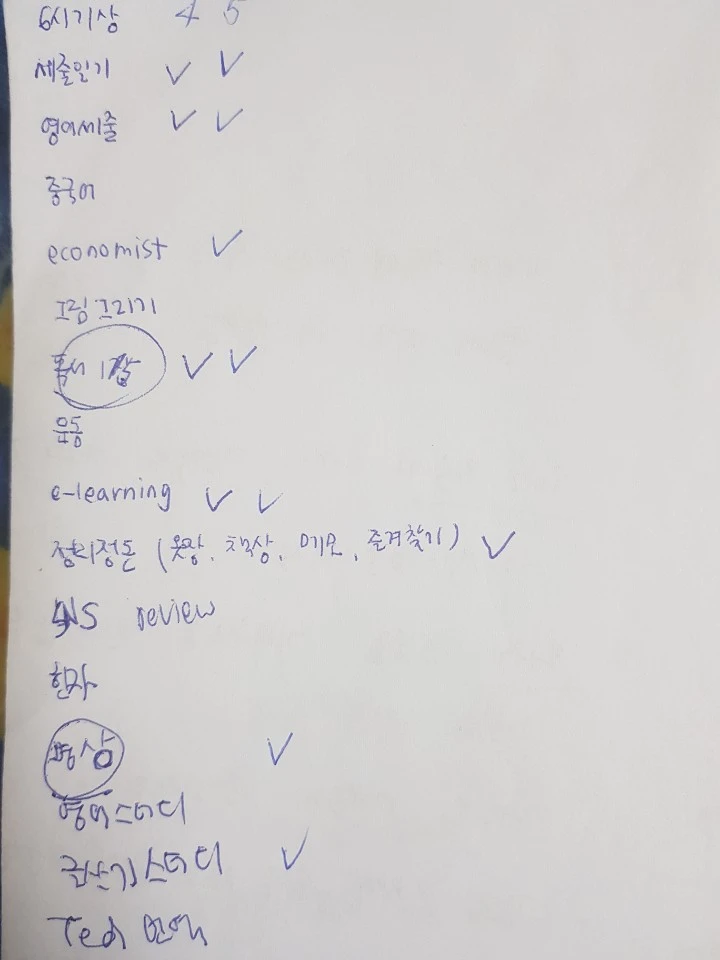 6시기상 4 5
세줄일기 ✓ ✓
영어세줄 ✓ ✓
중국어
economist ✓
그림그리기
독서 1장 ✓ ✓
운동
e-learning ✓ ✓
정리정돈 (옷장, 책상, 메모, 즐겨찾기) ✓
SNS review
한자
명상 ✓
영어스터디
글쓰기스터디 ✓
Ted